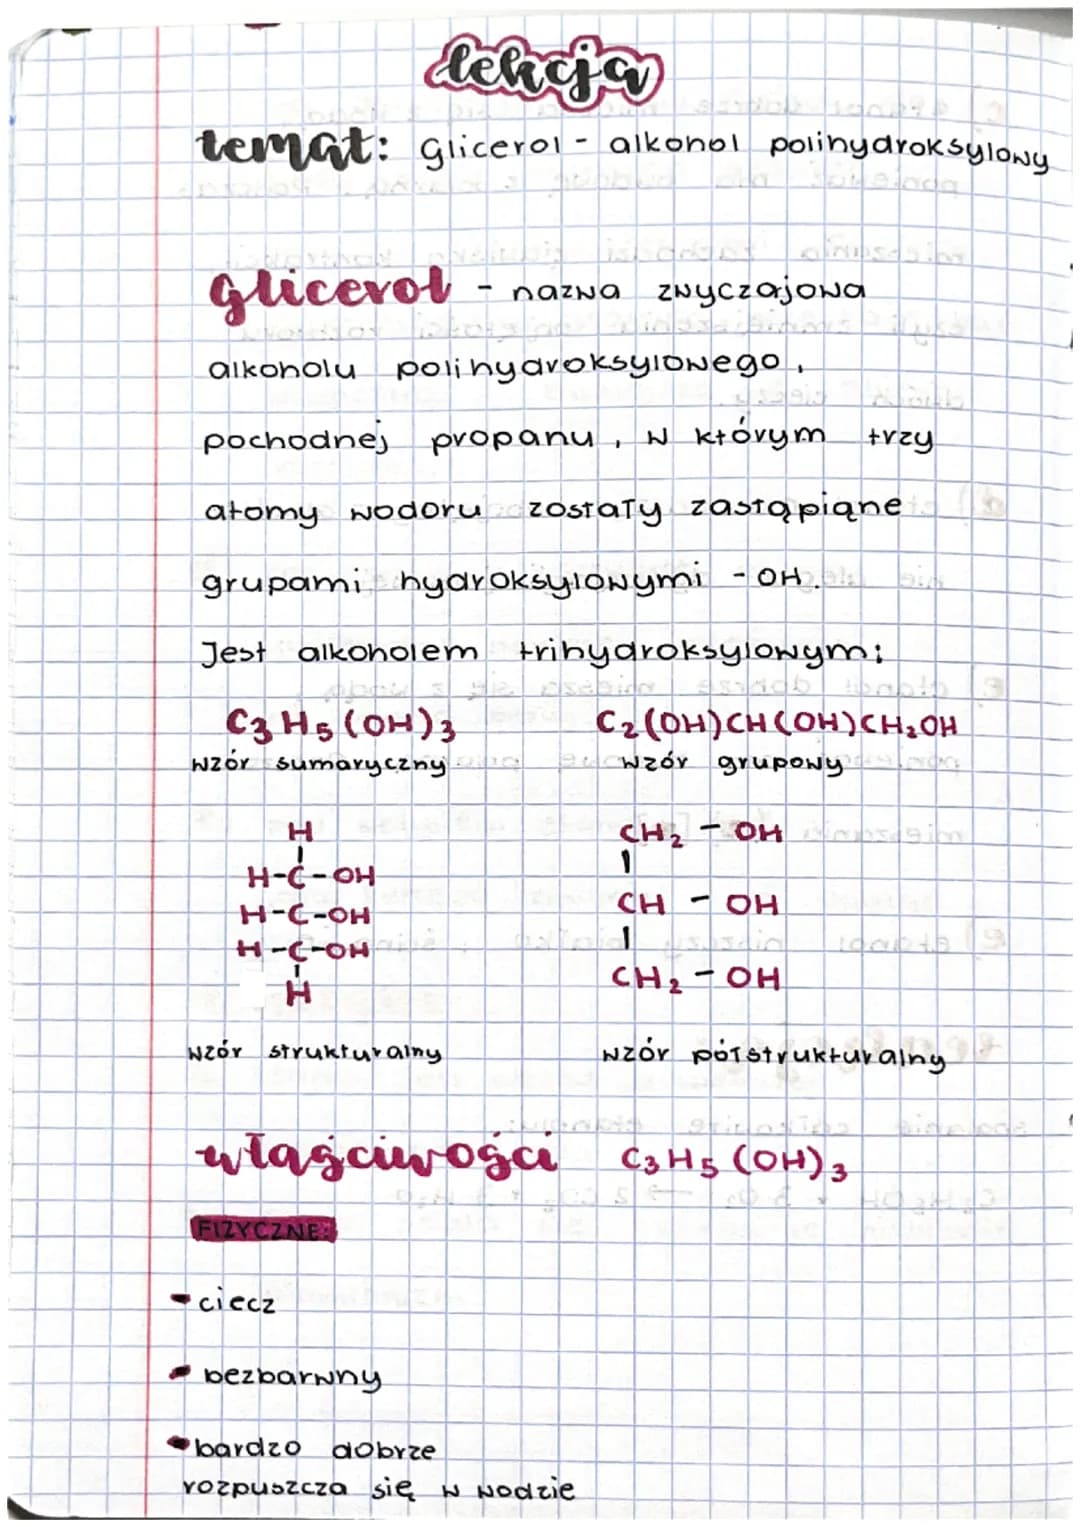 lekcja
temat: glicerol - alkohol polihydroksylowy
glicerol - nazwa zwyczajowa
alkoholu polihydroksylowego,
pochodnej propanu, w którym trzy
atomy wodoru zostały zastąpiąne
grupami hydroksylowymi - OH.
Jest alkoholem trihydroksylowym:
C3H5(OH)3 C2(OH)CH(OH)CH2OH
wzór sumaryczny wzór grupowy
H
H-C-OH
H-C-OH
H-C-OH
H
wzór strukturalny
CH2 - OH
CH - OH
CH2 - OH
wzór półstrukturalny
właściwości C3H5(OH)3
FIZYCZNE:
- ciecz
- bezbarwny
- bardzo dobrze
rozpuszcza się w wodzie